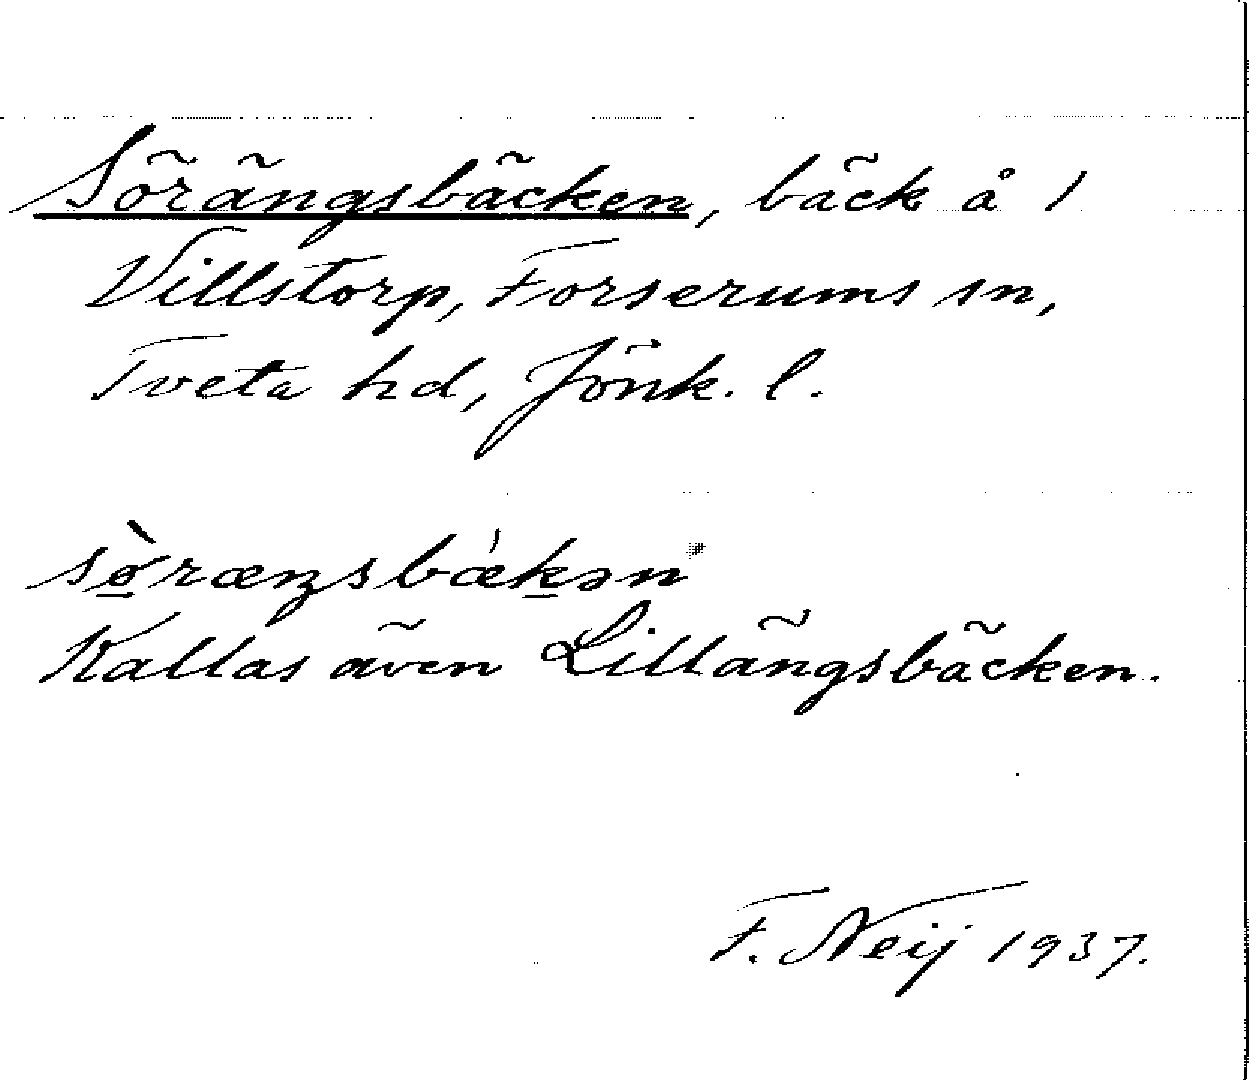 Sörängsbäcken, bäck å 1
Villstorp, Forserums sn,
Tveta hd, Jönk. l.
sø̠̀ræŋsbæ̍k̠ən
Kallas även Lillängsbäcken.
F. Neij 1937.